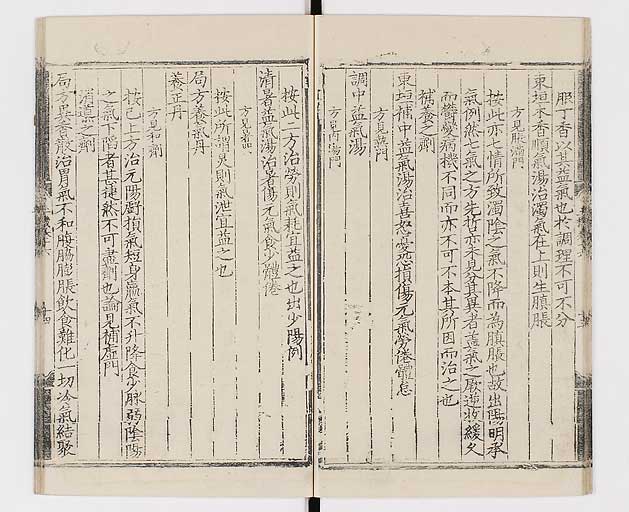 胆丁香以其益氣也於調理不可不分
東垣木香順氣湯治濁氣在上則生䐜脹
方見脹滿門
按此亦七情所致濁陰之氣不降而為䐜脹也故出陽明承
氣例然七氣之方先哲亦未見分其異者盖氣之厥逆收緩久
而鬱變病機不同而亦不可不本其所因而治之也
補養之劑
東垣補中益氣湯治喜怒憂恐損傷元氣勞倦體怠
方見熱門
調中益氣湯
方見門
按此二方治勞則氣耗宜益之也出少陽例
清暑益氣湯治暑傷元氣食少體倦
方見暑門
按此所謂炅則氣泄宜益之也
局方養氣丹
養正丹
方見劑
按已上方治元陽虧損氣短身羸氣不升降食少脉弱陰陽
之氣下陷者甚捷然不可盡劑也論見補虛門
消導之劑
局方養散治胃氣不和腹脇膨脹飲食難化一切冷氣結聚